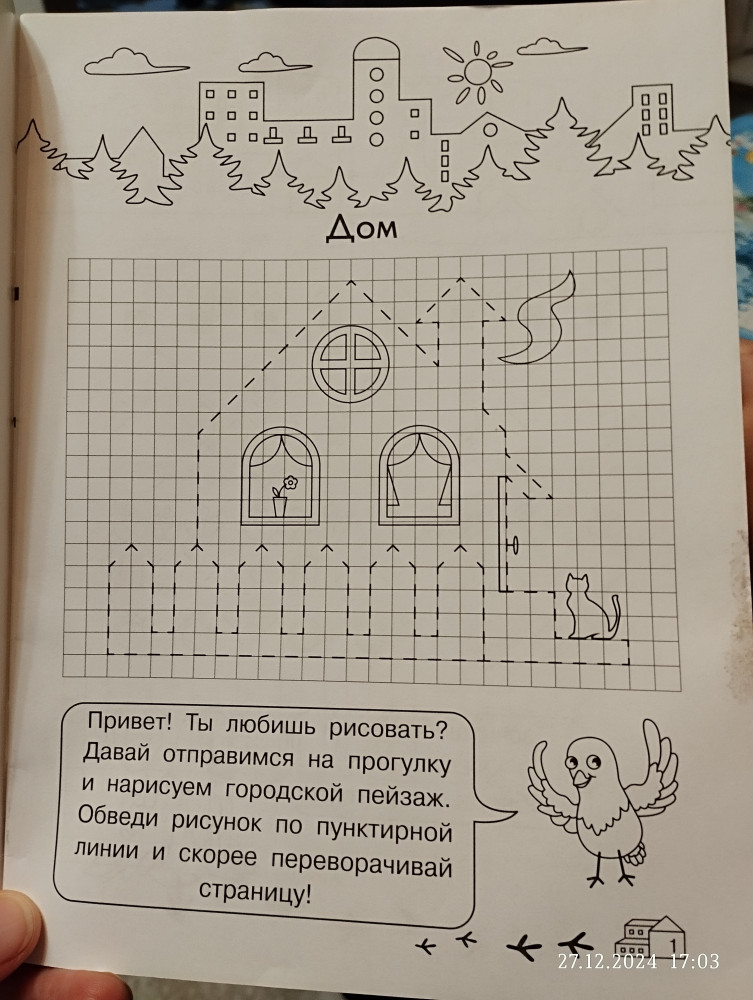 Дом
Привет! Ты любишь рисовать?
Давай отправимся на прогулку
и нарисуем городской пейзаж.
Обведи рисунок по пунктирной
линии и скорее переворачивай
страницу!
1
27.12.2024 17:03